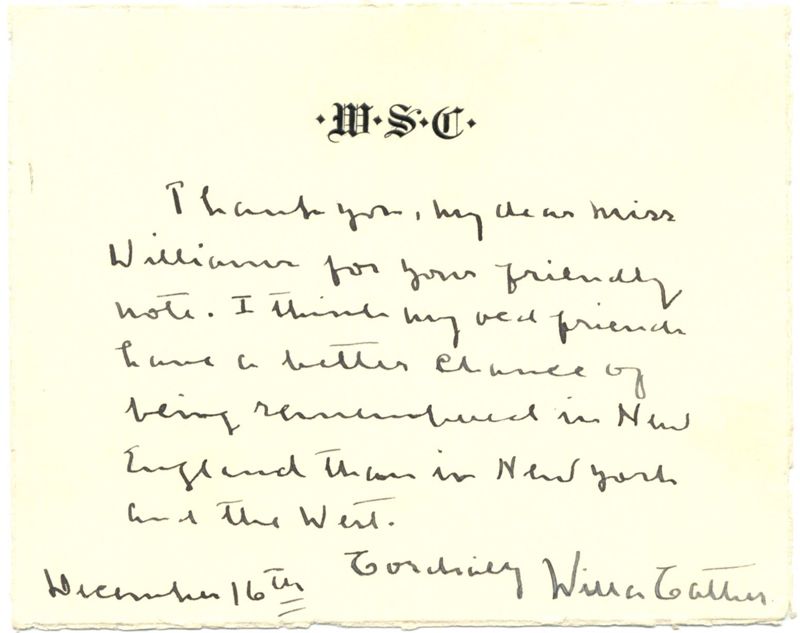 ·W·S·C·
Thank you, my dear Miss
Williams for your friendly
note. I think my old friends
have a better chance of
being remembered in New
England than in New York
and the West.
Cordially Willa Cather
December 16th